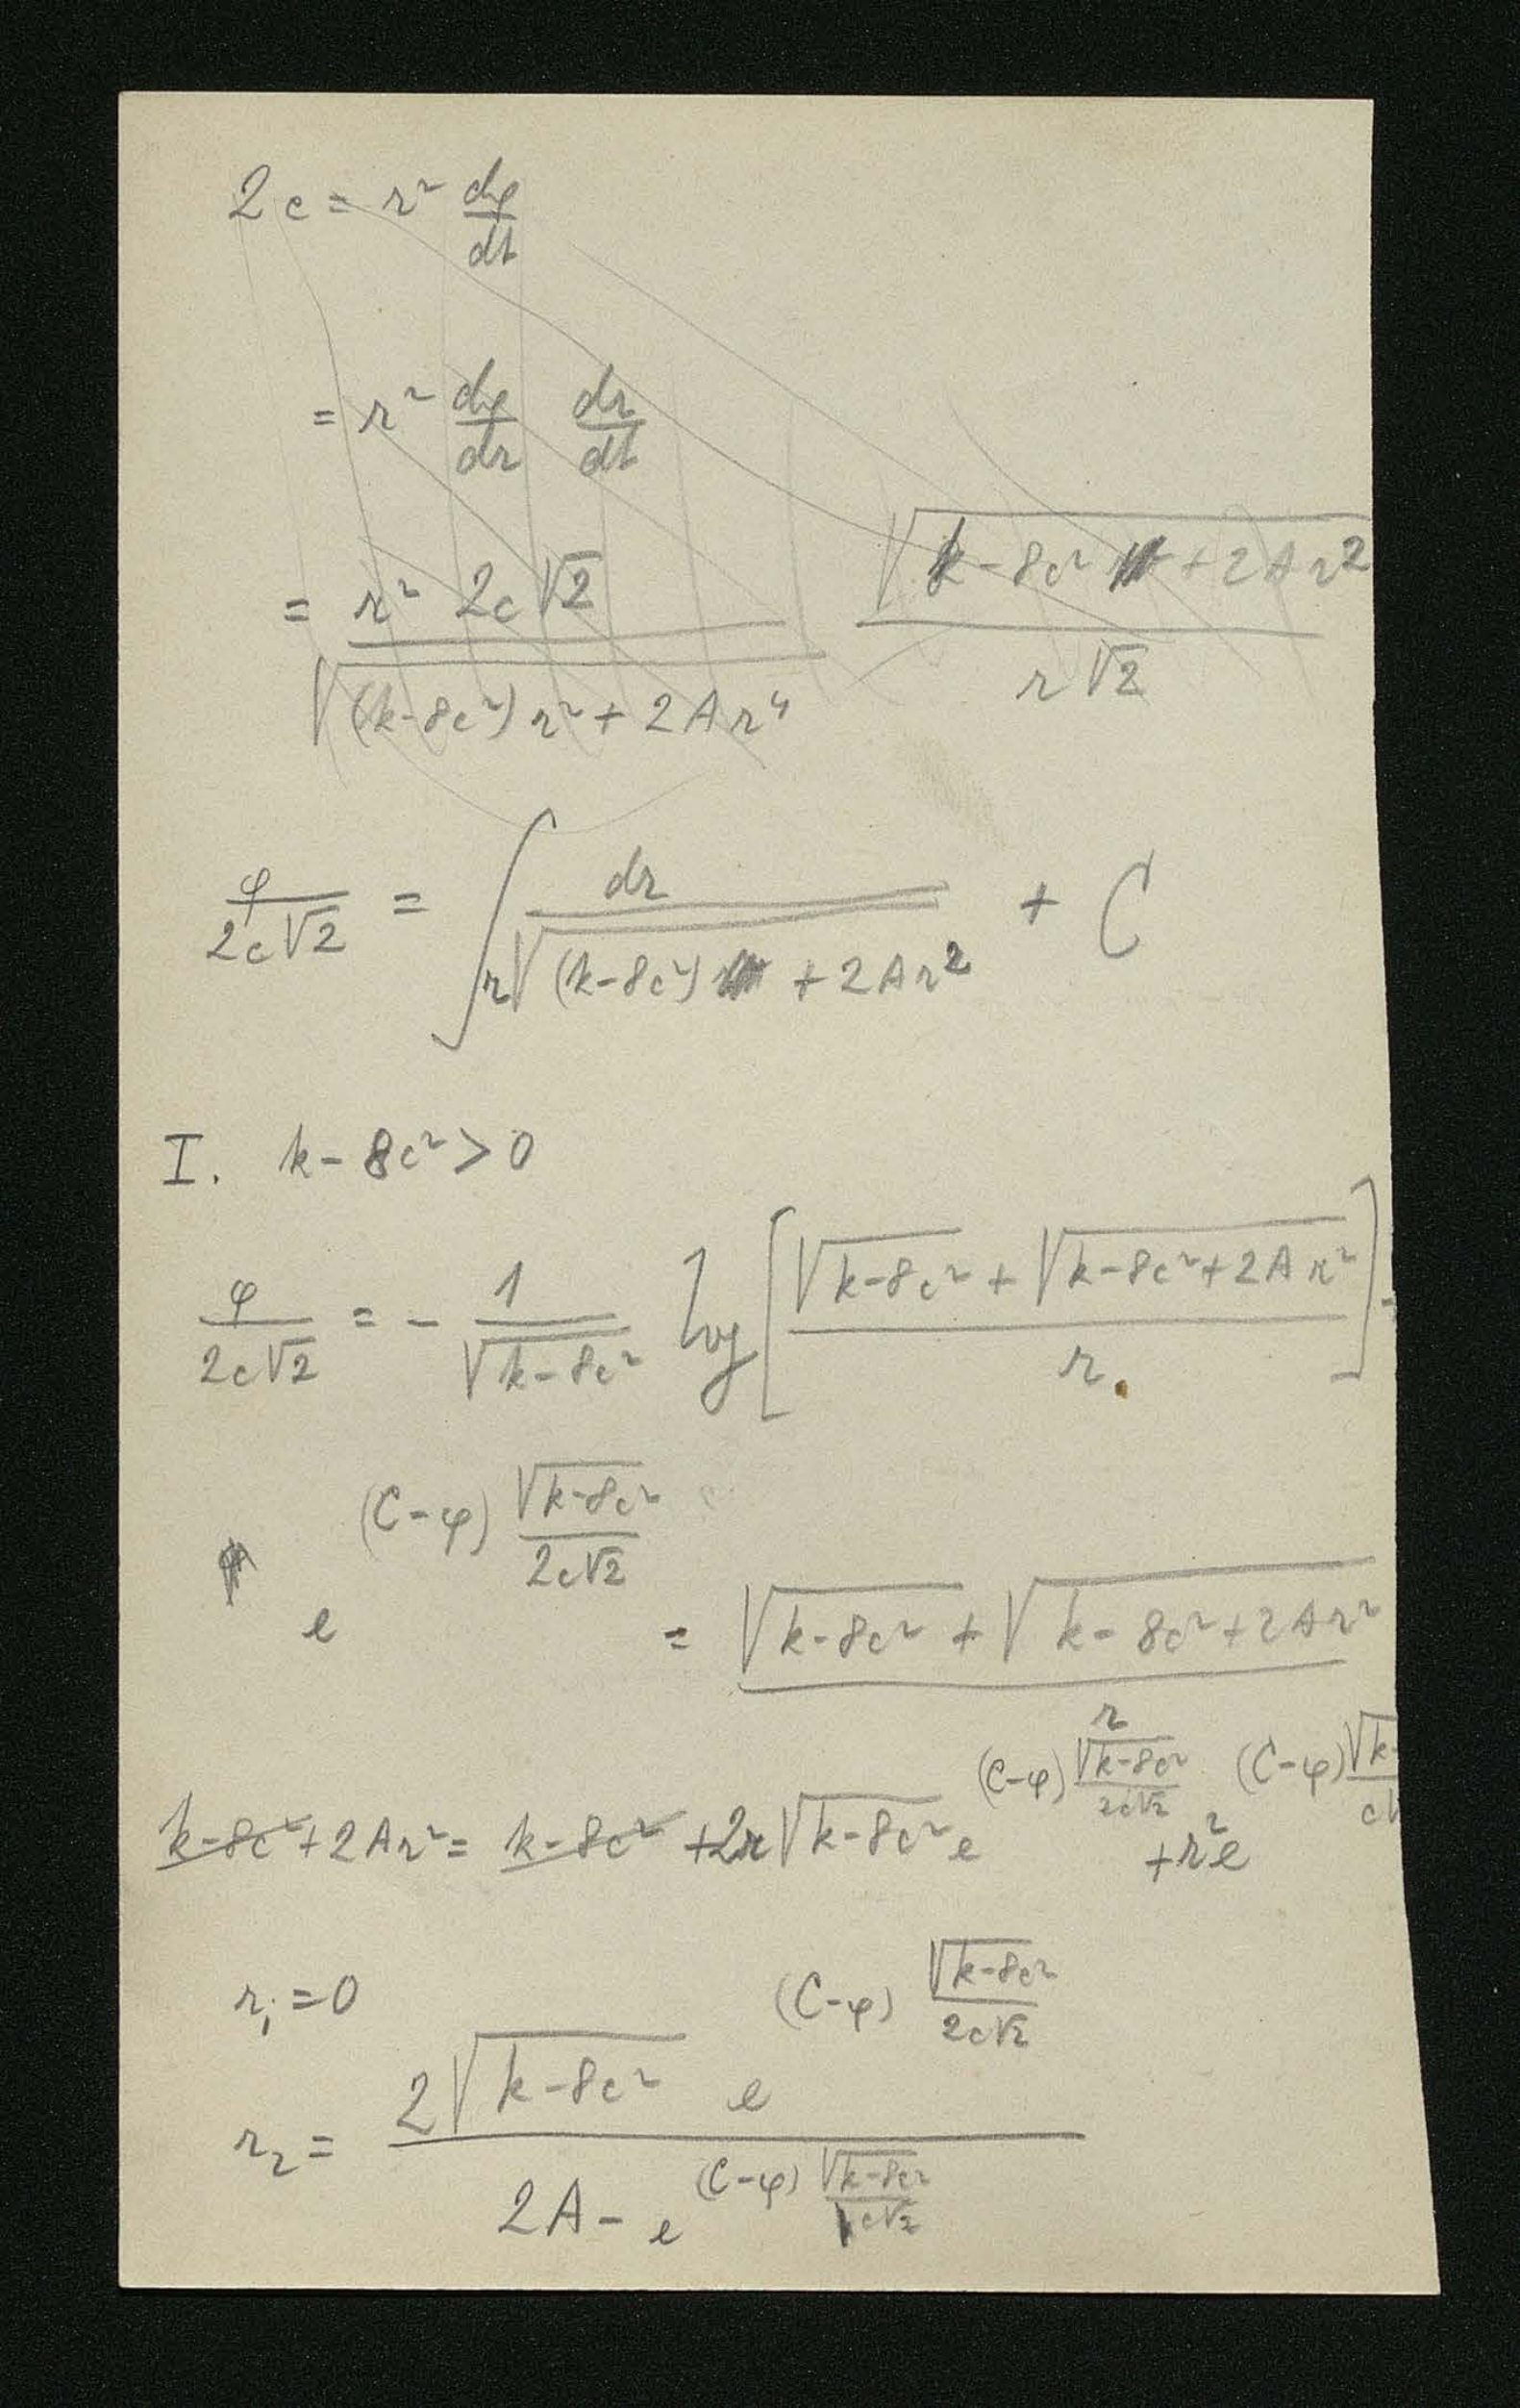 2c = r² dφ/dt
= r² dφ/dr dr/dt
= r² 2c√2 / √((k-8c²)r² + 2Ar⁴) √(k-8c² + 2Ar²) / r√2
φ/2c√2 = ∫ dr / r√((k-8c²) + 2Ar²) + C
I. k-8c² > 0
φ/2c√2 = - 1/√(k-8c²) log[(√(k-8c²) + √(k-8c²+2Ar²)) / r.]
e^((C-φ) √(k-8c²)/2c√2) = (√(k-8c²) + √(k-8c²+2Ar²)) / r
k-8c²+2Ar² = k-8c² +2r√(k-8c²) e^((C-φ) √(k-8c²)/2c√2) + r²e^((C-φ) √k-/c√
r₁ = 0
r₂ = 2√(k-8c²) e^((C-φ) √(k-8c²)/2c√2) / (2A - e^((C-φ) √(k-8c²)/c√2))